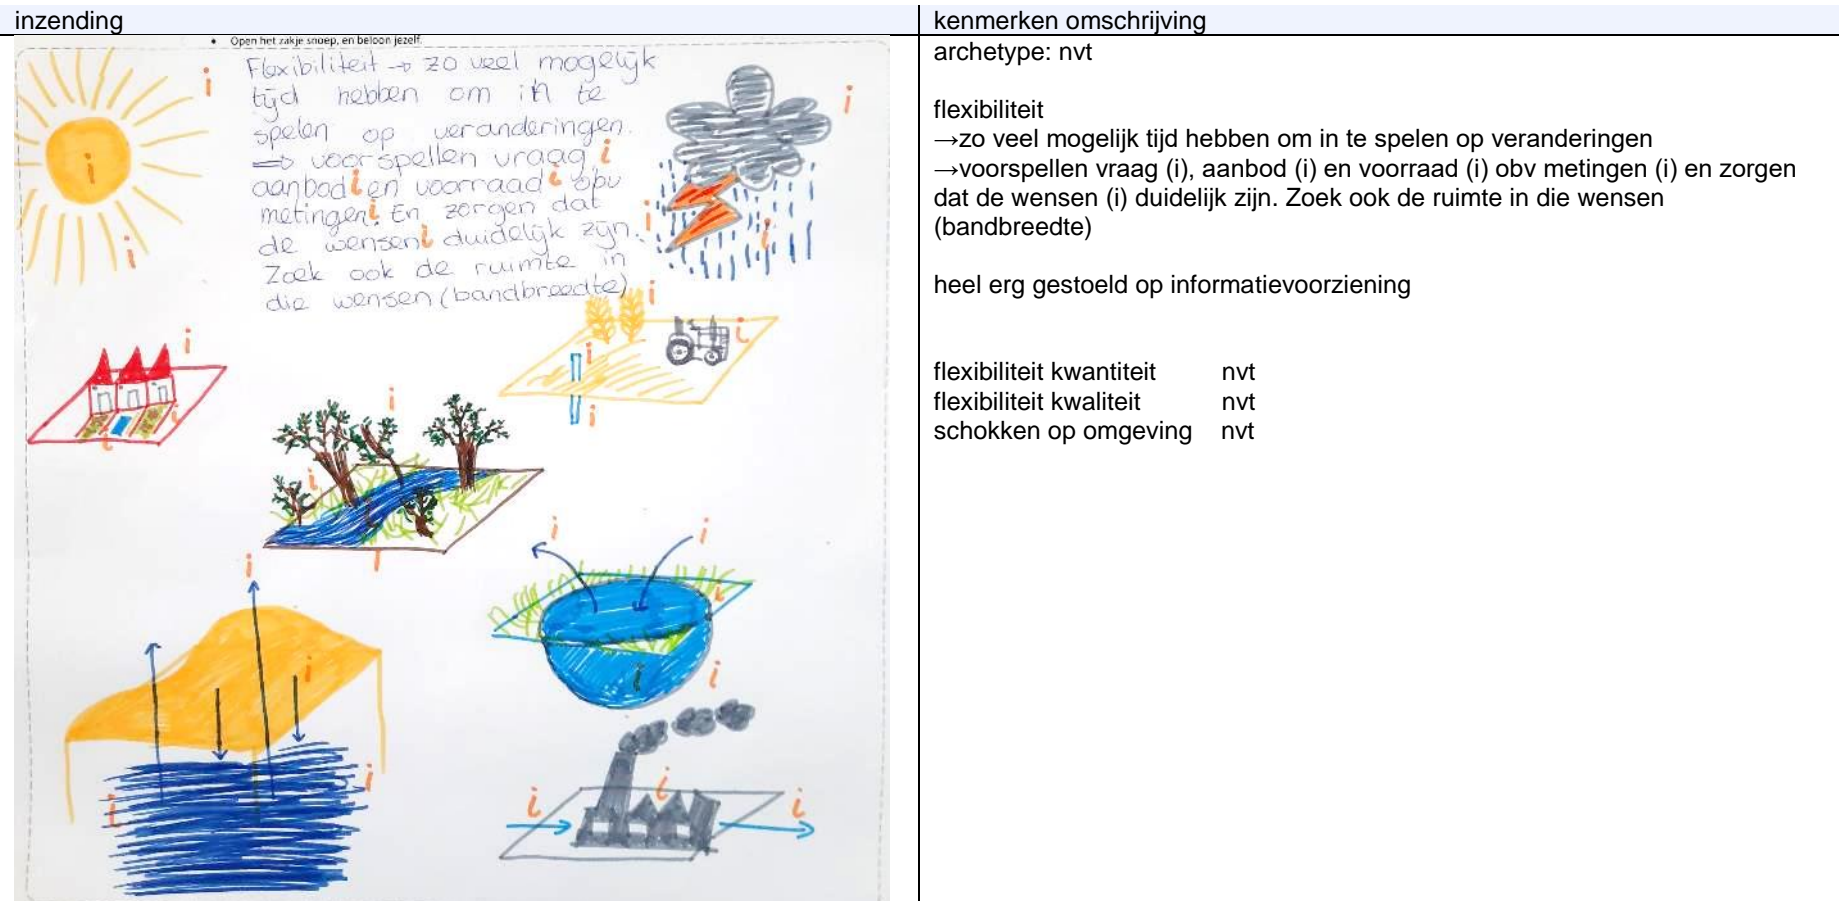 inzending
kenmerken omschrijving
• Open het zakje snoep, en beloon jezelf.
Flexibiliteit → zo veel mogelijk
tijd hebben om in te
spelen op veranderingen.
⇒ voorspellen vraag i
aanbod i en voorraad i obv
metingen i. En zorgen dat
de wensen i duidelijk zijn.
Zoek ook de ruimte in
die wensen (bandbreedte)
archetype: nvt
flexibiliteit
→zo veel mogelijk tijd hebben om in te spelen op veranderingen
→voorspellen vraag (i), aanbod (i) en voorraad (i) obv metingen (i) en zorgen
dat de wensen (i) duidelijk zijn. Zoek ook de ruimte in die wensen
(bandbreedte)
heel erg gestoeld op informatievoorziening
flexibiliteit kwantiteit nvt
flexibiliteit kwaliteit nvt
schokken op omgeving nvt